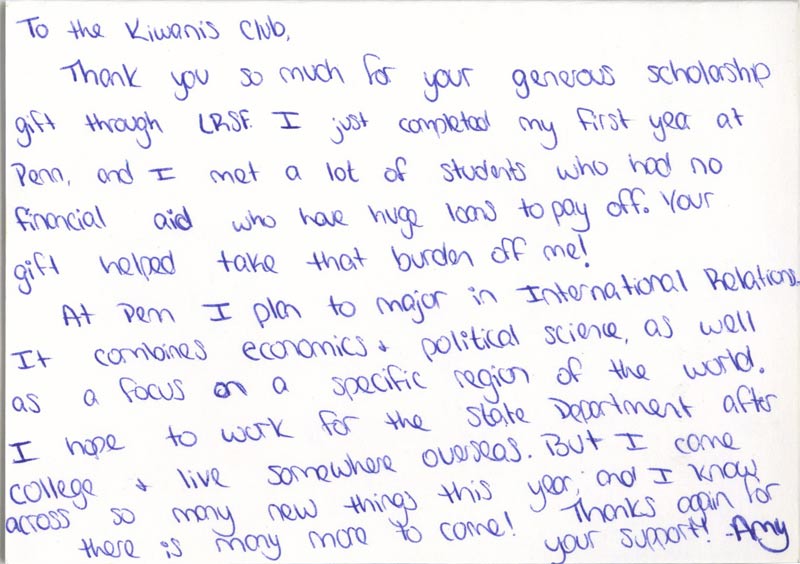 To the Kiwanis Club,
Thank you so much for your generous scholarship
gift through LRSF. I just completed my first year at
Penn, and I met a lot of students who had no
financial aid who have huge loans to pay off. Your
gift helped take that burden off me!
At Penn I plan to major in International Relations.
It combines economics & political science, as well
as a focus on a specific region of the world.
I hope to work for the State Department after
college & live somewhere overseas. But I came
across so many new things this year, and I know
there is many more to come! Thanks again for
your support! -Amy